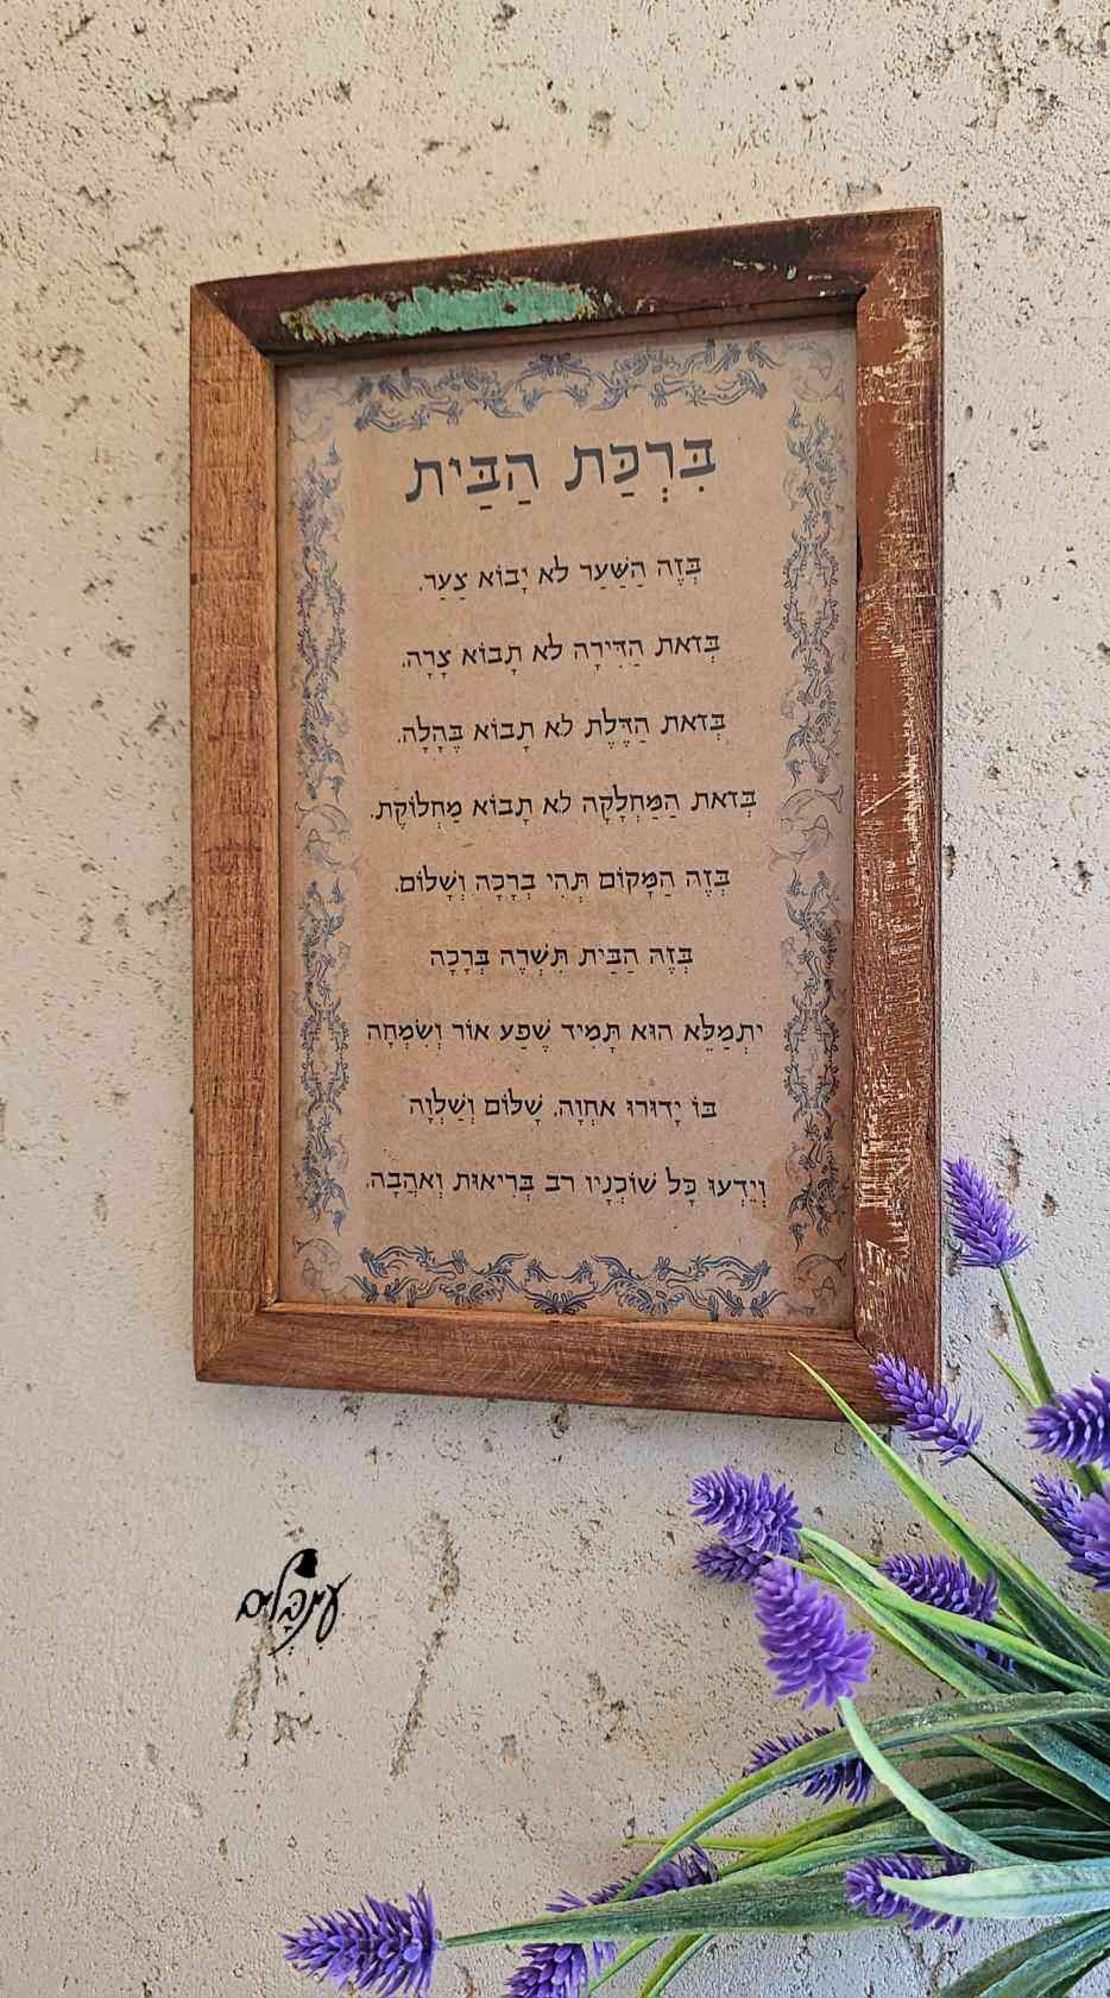 בִּרְכַּת הַבַּיִת
בְּזֶה הַשַּׁעַר לֹא יָבוֹא צַעַר.
בְּזֹאת הַדִּירָה לֹא תָבוֹא צָרָה.
בְּזֹאת הַדֶּלֶת לֹא תָבוֹא בֶּהָלָה.
בְּזֹאת הַמַּחְלָקָה לֹא תָבוֹא מַחְלוֹקֶת.
בְּזֶה הַמָּקוֹם תְּהִי בְרָכָה וְשָׁלוֹם.
בְּזֶה הַבַּיִת תִּשְׁרֶה בְּרָכָה
יִתְמַלֵּא הוּא תָּמִיד שֶׁפַע אוֹר וְשִׂמְחָה
בּוֹ יָדוּרוּ אַחְוָה, שָׁלוֹם וְשַׁלְוָה
וְיֵדְעוּ כָּל שׁוֹכְנָיו רב בְּרִיאוּת וְאַהֲבָה.